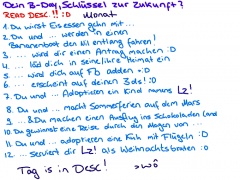 Dein B-Day, Schlüssel zur Zukunft?
READ DESC.!! :D Monat
1. Du wirst Eis essen gehn mit ...
2. Du und ... werden in einem
Bananenboot den Nil entlang fahren!
3. ... wird dir einen Antrag machen :D
4. ... läd dich in seine/ihre Heimat ein
5. ... wird dich auf Fb adden :D
6. ... erscheint auf deinen 3ds! :O
7. Du und ... Adoptieren ein Kind namens Lz!
8. Du und ... macht Sommerferien auf dem Mars
9. ... & Du machen einen Ausflug ins Schokoladen land
10. Du gewinnst eine Reise durch den Magen von ...
11. Du und ... adoptieren eine Kuh mit Flügeln :D
12. ... serviert dir Lz! als Weihnachtsbraten :O
Tag is in Desc!